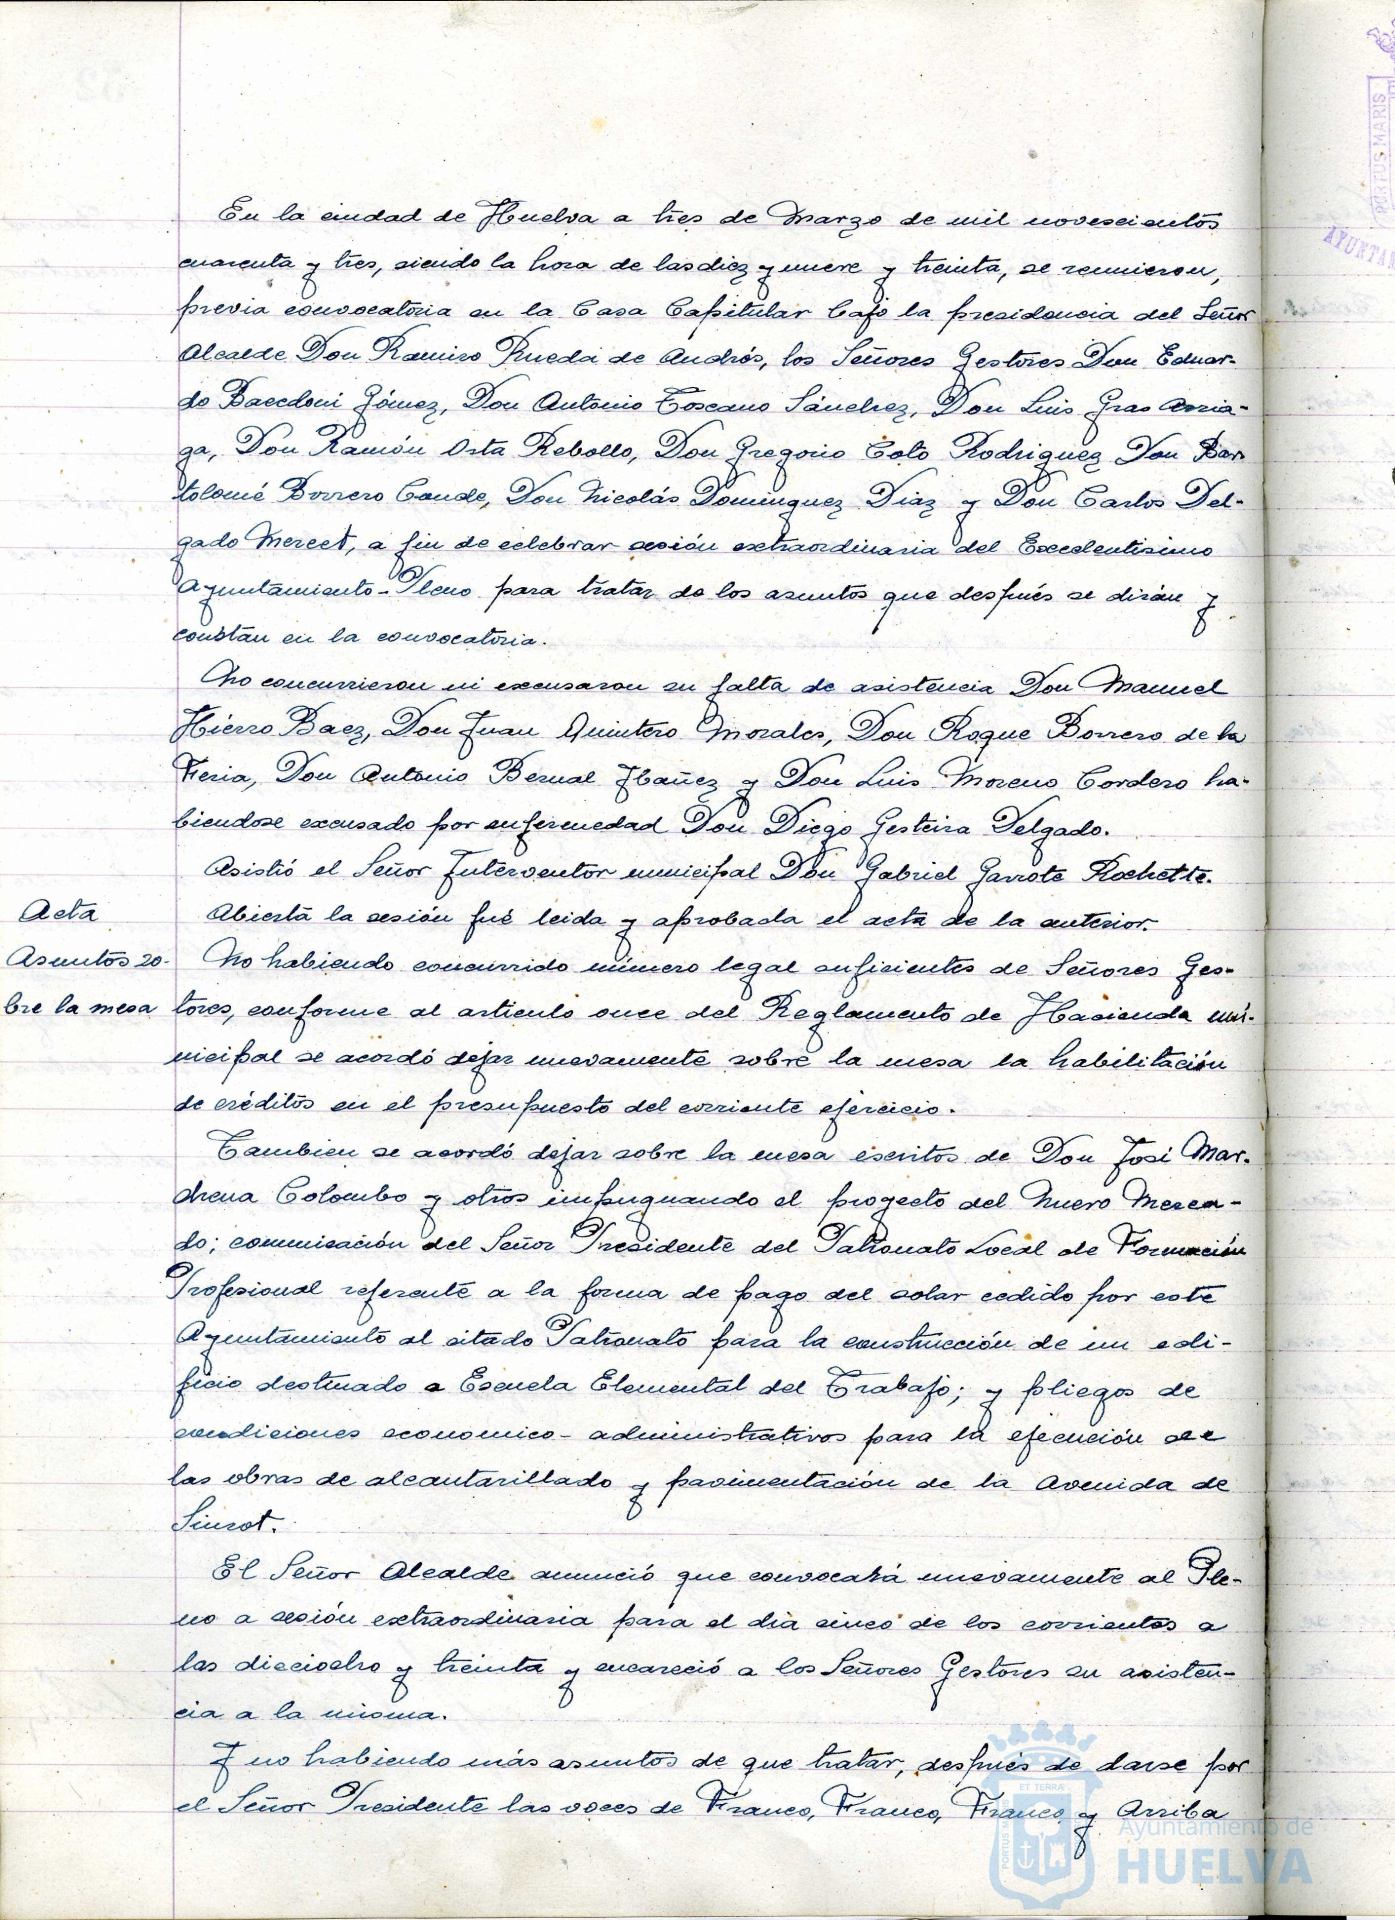 En la ciudad de Huelva a tres de Marzo de mil novescientos
cuarenta y tres, siendo la hora de las diez y nueve y treinta, se reunieron,
previa convocatoria en la Casa Capitular bajo la presidencia del Señor
Alcalde Don Ramiro Rueda de Andrés, los Señores Gestores Don Eduar-
do Baccdoni Gómez, Don Antonio Toscano Sánchez, Don Luis Gras Arria-
ga, Don Ramón Orta Rebollo, Don Gregorio Coto Rodriguez Don Bar
tolomé Borrero Conde, Don Nicolás Dominguez Diaz y Don Carlos Del-
gado Mercet, a fin de celebrar sesión extraordinaria del Excelentisimo
Ayuntamiento-Pleno para tratar de los asuntos que después se dirán y
constan en la convocatoria.
No concurrieron ni excusaron su falta de asistencia Don Manuel
Hierro Baez, Don Juan Quintero Morales, Don Roque Borrero de la
Feria, Don Antonio Bernal Ibañez y Don Luis Moreno Cordero ha-
biendose excusado por enfermedad Don Diego Gesteira Delgado.
Asistió el Señor Interventor municipal Don Gabriel Garrote Rochette.
Acta
Abierta la sesión fué leida y aprobada el acta de la anterior.
Asuntos so-
bre la mesa
No habiendo concurrido número legal suficientes de Señores Ges-
tores, conforme al articulo once del Reglamento de Hacienda mu-
nicipal se acordó dejar nuevamente sobre la mesa la habilitación
de créditos en el presupuesto del corriente ejercicio.
Tambien se acordó dejar sobre la mesa escritos de Don José Mar-
chena Colombo y otros impugnando el proyecto del Nuevo Merca-
do; comunicación del Señor Presidente del Patronato Local de Formación
Profesional referente a la forma de pago del solar cedido por este
Ayuntamiento al citado Patronato para la construcción de un edi-
ficio destinado a Escuela Elemental del Trabajo; y pliegos de
condiciones economico-administrativos para la ejecución de
las obras de alcantarillado y pavimentación de la Avenida de
Siurot.
El Señor Alcalde anunció que convocará nuevamente al Ple-
no a sesión extraordinaria para el dia cinco de los corrientes a
las dieciocho y treinta y encareció a los Señores Gestores su asisten-
cia a la misma.
Y no habiendo más asuntos de que tratar, después de darse por
el Señor Presidente las voces de Franco, Franco, Franco y Arriba
Ayuntamiento de
HUELVA
PORTUS MARIS